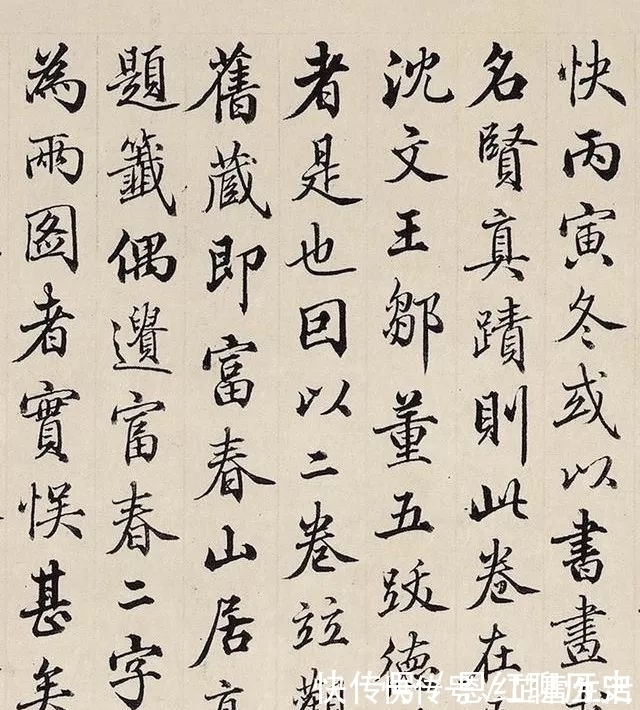 快丙寅冬或以書畫
名賢真蹟則此卷在
沈文王鄒董五跋德
者是也因以二卷竝觀
舊蔵即富春山居
題籤偶遺富春二字
為兩圖者實悞甚矣